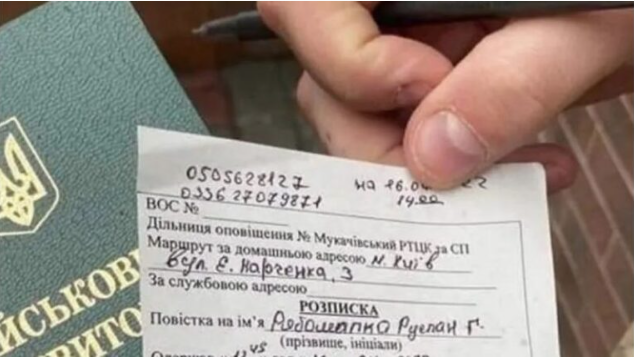 ЙСЬКОВ
ВИТО
0505628127 на 16.0
033627079871 14.00
ВОС №
Дільниця оповіщення № Мукачівський РТЦК та СП
Маршрут за домашньою адресою м. Київ
вул. Є. Харченка, 3
За службовою адресою
РОЗПИСКА
Повістка на ім'я Руслан Г.
(прізвище, ініціали)